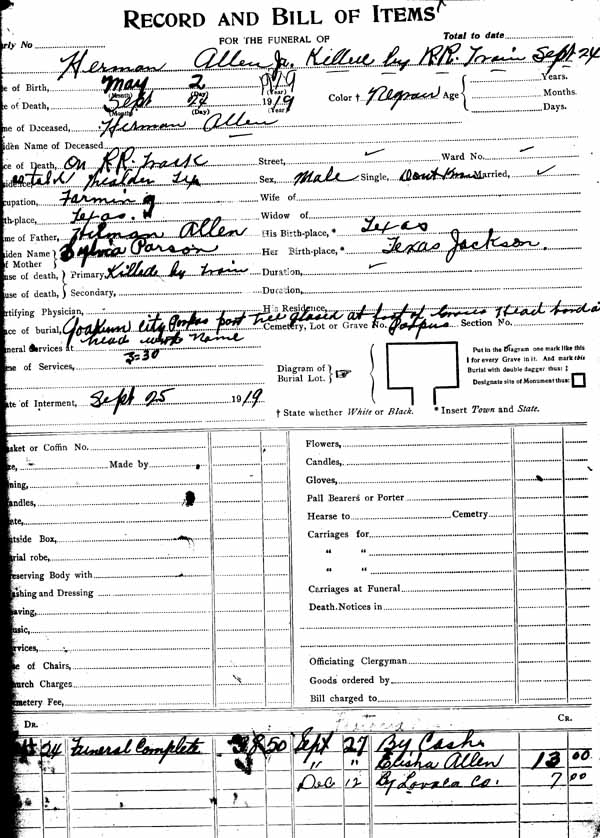 RECORD AND BILL OF ITEMS
FOR THE FUNERAL OF
Total to date
rly No
Herman Allen Jr. Killed by RR. Train Sept 24
e of Birth, May 2 1919 Years.
(Month) (Day) (Year)
e of Death, Sept 24 1919 Color † Negrow Age Months.
(Month) (Day) (Year) Days.
me of Deceased, Herman Allen
iden Name of Deceased
ce of Death, On RR. Track Street, Ward No.
sidence, Tex Sex, Male Single, Dont Know Married,
cupation, Farming Wife of
rth-place, Texas. Widow of
me of Father, Herman Allen His Birth-place,* Texas
iden Name of Mother Sylvia Parson Her Birth-place,* Texas Jackson.
use of death, Primary, Killed by train Duration,
use of death, Secondary, Duration,
rtifying Physician, His Residence,
ace of burial, Yoakum City post tree placed at foot of head board Cemetery, Lot or Grave No. Section No.
neral Services at head with name
me of Services, 3=30
ate of Interment, Sept 25 1919
Diagram of Burial Lot.
Put in the Diagram one mark like this
I for every Grave in it. And mark this
Burial with double dagger thus: ‡
Designate site of Monument thus:
† State whether White or Black. * Insert Town and State.
sket or Coffin No.
ze, Made by
ning,
andles,
ate,
utside Box,
rial robe,
eserving Body with
ashing and Dressing
aving,
usic,
rvices,
se of Chairs,
urch Charges
metery Fee,
Flowers,
Candles,
Gloves,
Pall Bearers or Porter
Hearse to Cemetry
Carriages for
" "
" "
Carriages at Funeral
Death Notices in
Officiating Clergyman
Goods ordered by
Bill charged to
DR. CR.
24 Funeral Complete 38 50 Sept 27 By Cash
" " Elisha Allen 13 00
Dec 12 By Lavaca Co. 7 00